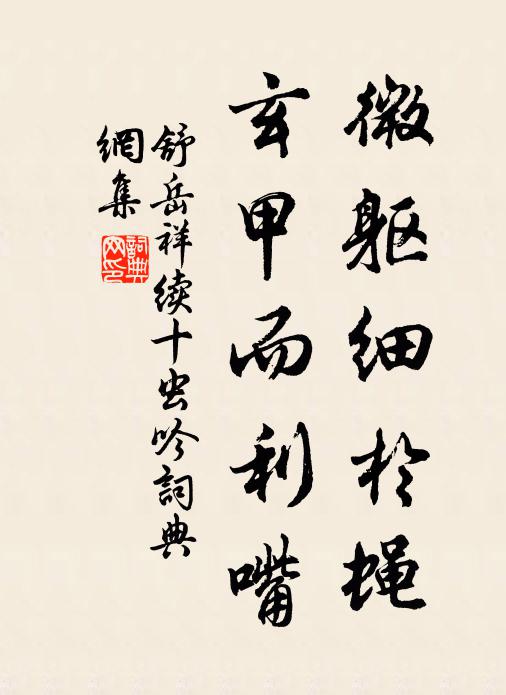 微躯细於蝇
玄甲而利嘴
舒岳祥续十虫吟词典
网集
词典网印